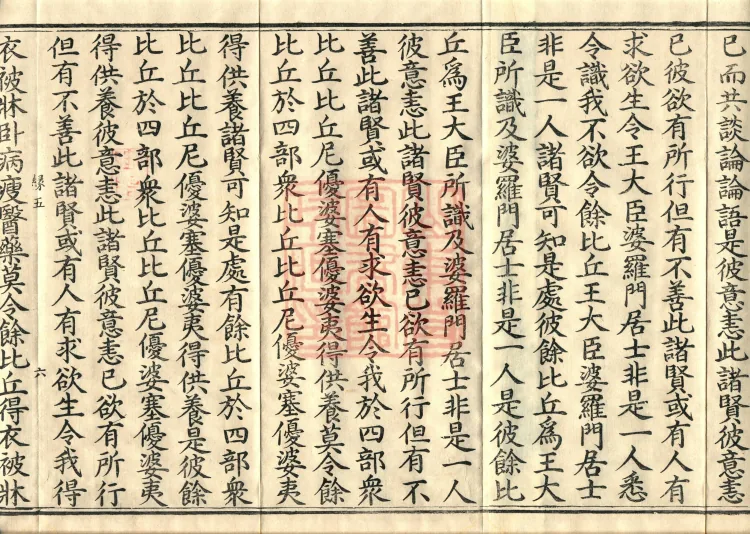 已而共談論論語是彼意恚此諸賢彼意恚
已彼欲有所行但有不善此諸賢或有人有
求欲生令王大臣婆羅門居士非是一人悉
令識我不欲令餘比丘王大臣婆羅門居士
非是一人諸賢可知是處彼餘比丘爲王大
臣所識及婆羅門居士非是一人是彼餘比
丘爲王大臣所識及婆羅門居士非是一人
彼意恚此諸賢彼意恚已欲有所行但有不
善此諸賢或有人有求欲生令我於四部衆
比丘比丘尼優婆塞優婆夷得供養莫令餘
比丘於四部衆比丘比丘尼優婆塞優婆夷
得供養諸賢可知是處有餘比丘於四部衆
比丘比丘尼優婆塞優婆夷得供養是彼餘
比丘於四部衆比丘比丘尼優婆塞優婆夷
得供養彼意恚此諸賢彼意恚已欲有所行
但有不善此諸賢或有人有求欲生令我得
五 六
衣被牀卧病瘦醫藥莫令餘比丘得衣被牀